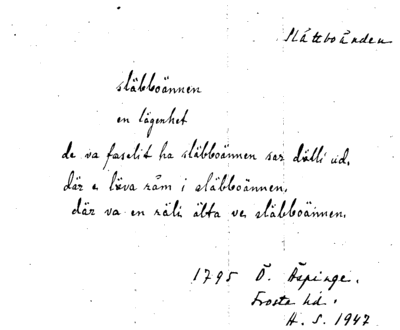 Slättboänden
släbboännen
en lägenhet
de va faselit ha släbboännen sar dålli ud.
där e löva råm i släbboännen.
där va en räli älta ve släbboännen.
1795 Ö. Äspinge.
Frosta hd.
H. S. 1947